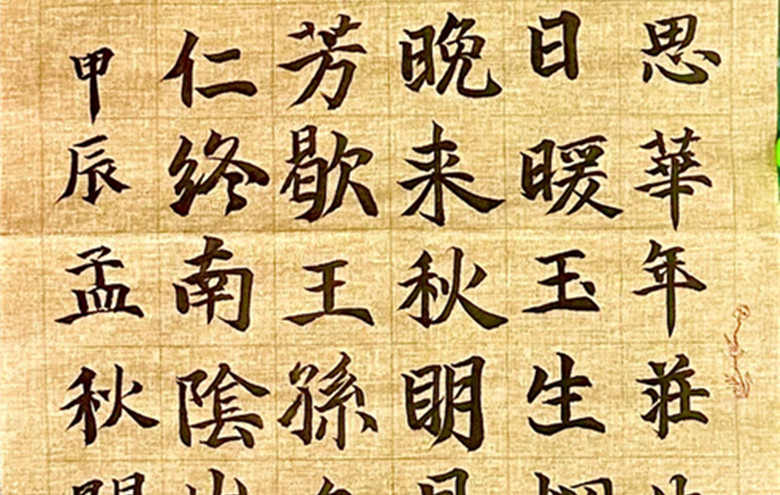 思華年莊
日暖玉生
晚来秋明
芳歇王孫
仁終南陰
甲辰孟秋